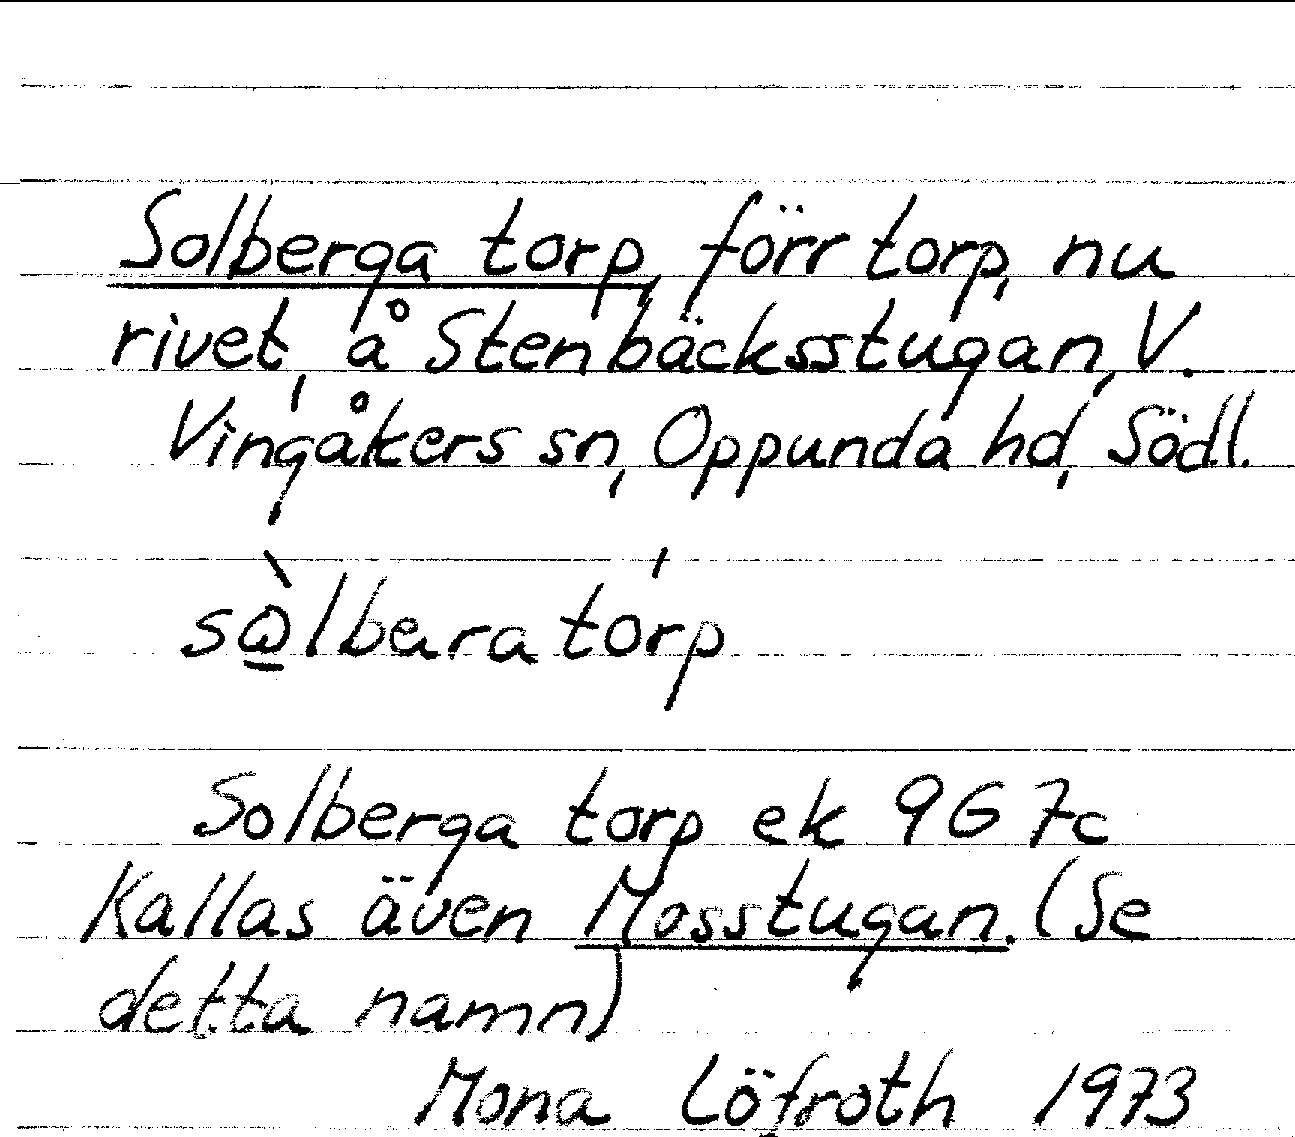 Solberga torp, förr torp, nu
rivet, å Stenbäcksstugan, V.
Vingåkers sn, Oppunda hd, Södl.
Solberga torp ek 9G 7c
Kallas även Mosstugan. (Se
detta namn)
Mona Löfroth 1973